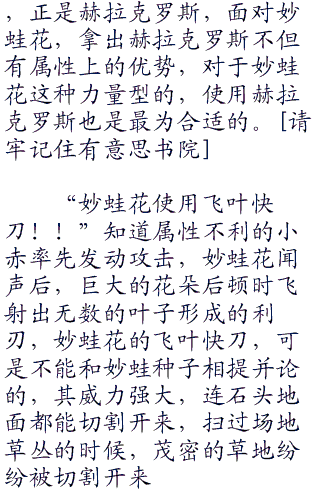 ，正是赫拉克罗斯，面对妙
蛙花，拿出赫拉克罗斯不但
有属性上的优势，对于妙蛙
花这种力量型的，使用赫拉
克罗斯也是最为合适的。[请
牢记住有意思书院]
“妙蛙花使用飞叶快
刀！！”知道属性不利的小
赤率先发动攻击，妙蛙花闻
声后，巨大的花朵后顿时飞
射出无数的叶子形成的利
刃，妙蛙花的飞叶快刀，可
是不能和妙蛙种子相提并论
的，其威力强大，连石头地
面都能切割开来，扫过场地
草丛的时候，茂密的草地纷
纷被切割开来